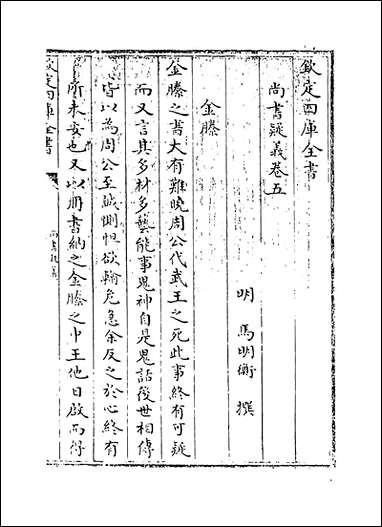 欽定四庫全書
尚書疑義卷五
明 馬明衡 撰
金縢
金縢之書大有難曉周公代武王之死此事終有可疑
而又言其多材多藝能事鬼神自是鬼話後世相傳
皆以為周公至誠惻怛欲輸危急余反之於心終有
所未妥也又以冊書納之金縢之中王他日啟而得
欽定四庫全書
尚書疑義